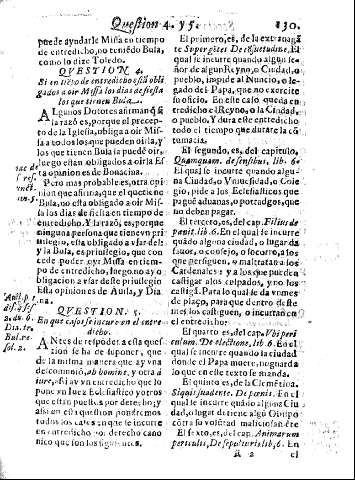 Question 4. y 5.
130.
puede ayudarle Missa en tiempo
de entredicho, no teniẽdo Bula,
como lo dize Toledo.
QVESTION 4.
Si en tiẽpo de entredicho estã obli
gados a oir Missa los dias de fiesta
los que tienen Bula.
ALgunos Dotores afirmanq̃ si
la razõ es, porque el precep-
to de la Iglesia, obliga a oir Mis-
sa a todos los que pueden oirla, y
los que tienen Bula la puedẽ oir,
luego estan obligados a oirla Es
ta opinion es de Bonacina.
Pero mas probable es, otra opi
nion que afirma, que el que tiene
Bula, no està obligado a oir Mis-
sa los dias de fiesta en tiempo de
entredicho. Y la razõ es, porque
ninguna persona que tiene vn pri
uilegio, està obligado a vsar del:
y la Bula, es priuilegio, que con
cede poder oyr Missa en tiempo
de entredicho, luego no ay o
bligacion a vsar deste priuilegio
Esta opinion es de Auila, y Dia
na.
QVESTION. 5.
En que casos se incurre en el entre
dicho.
ANtes de respõder a esta que-
stion se ha de suponer, que
de la misma manera que ay vna
descomuniõ, ab homine, y otra à
iure, assi ay vn entredicho que lo
pone vn Iuez Eclesiastico y otros
que estan puestos por derecho; y
assi en esta question pondremos
todos los casos en que se incurre
en entredicho por derecho cano
nico que son los siguientes.
El primero, es, de la extrauagã
te Supergẽtes De cõsuetudine. El
qual se incurre quando algun se-
ñor de algun Reyno, o Ciudad, o
pueblo, impide al Nuncio, o le-
gado del Papa, que no exercite
su oficio. En este caso queda en-
tredicho el Reyno, o la Ciudad,
o pueblo. Y dura este entredicho
todo el tiempo que durare la cõ-
tumacia.
El segundo, es, del capitulo,
Quamquam. de sensibus, lib. 6.
El qual se incurre quando algu-
na Ciudad, o Vniuersidad, o Cole
gio, pide a los Eclesiasticos que
paguẽ aduanas, o portadgos, que
no deben pagar.
El tercero, es, del cap. Filius de
pœnit. lib. 6. En el qual se incurre
quãdo alguna ciudad, o lugar da
fauor, o consejo, o socorro, a los
que persiguen, o maltratan a los
Cardenales: y a los que pueden
castigar a los culpados, y no los
castigã. Para lo qual se da vn mes
de plaço, para que dentro deste
mes los castiguen, o incurran en
el entredicho:
El quarto es, del cap. Vbi peri
culum. De electione, lib. 6. En el
qual se incurre quando la ciudad
donde el Papa muere, no guarda
lo que en este texto se manda.
El quinto es, de la Clemẽtina.
Siquis suadente. De pœnis. En el
qual se incurre quãdo alguna Ciu
dad, o lugar detiene algũ Obispo
cõtra su volũtad maliciosamẽte
El sexto, es, del cap. Animarum
periculis, De sepulturis lib, 6. En
R 2
el